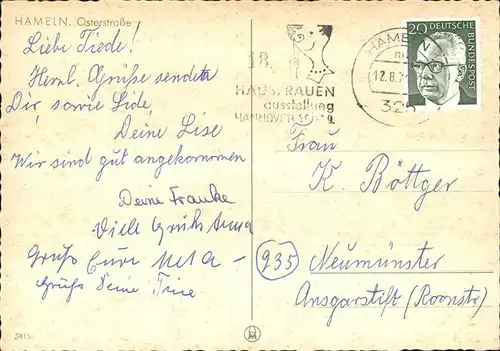 HAMELN, Osterstraße
Liebe Tiede!
Herzl. Grüße sendet
Dir sowie Lide,
Deine Lise
Wir sind gut angekommen
Deine Frauke
Viele Grüße Anna
Gruß Eure Meta -
Gruß Deine True
3415
18.
HAUSFRAUEN
ausstellung
HANNOVER
HAMELN
12.8.
325
20 DEUTSCHE BUNDESPOST
Frau
K. Böttger
(235) Neumünster
Ansgarstift (Roonstr)